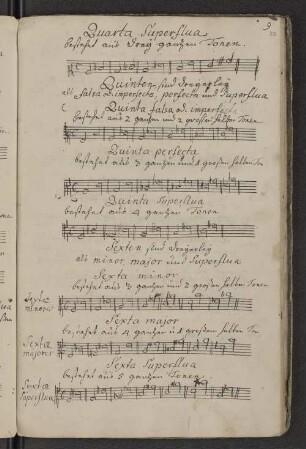 9
Quarta Superflua
bestehet aus dreÿ gantzen Tonen.
Quinten sind dreÿerleÿ
als falsa od. imperfecta, perfecta und Superflua
Quinta falsa od. imperfecta
bestehet aus 2 gantzen und 2 großen halben Tonen
Quinta perfecta
bestehet aus 3 gantzen und 1 großen halben Ton
Quinta Superflua
bestehet aus 4 gantzen Tonen
Sexten sind dreÿerleÿ
als minor major und Superflua
Sexta minor
bestehet aus 3 gantzen und 2 großen halben Tonen
Sexta
minora
Sexta major
bestehet aus 4 gantzen u 1 großen halben Ton
Sexta
majorer
Sexta Superflua
bestehet aus 5 gantzen Tonen
Sexta
Superflua